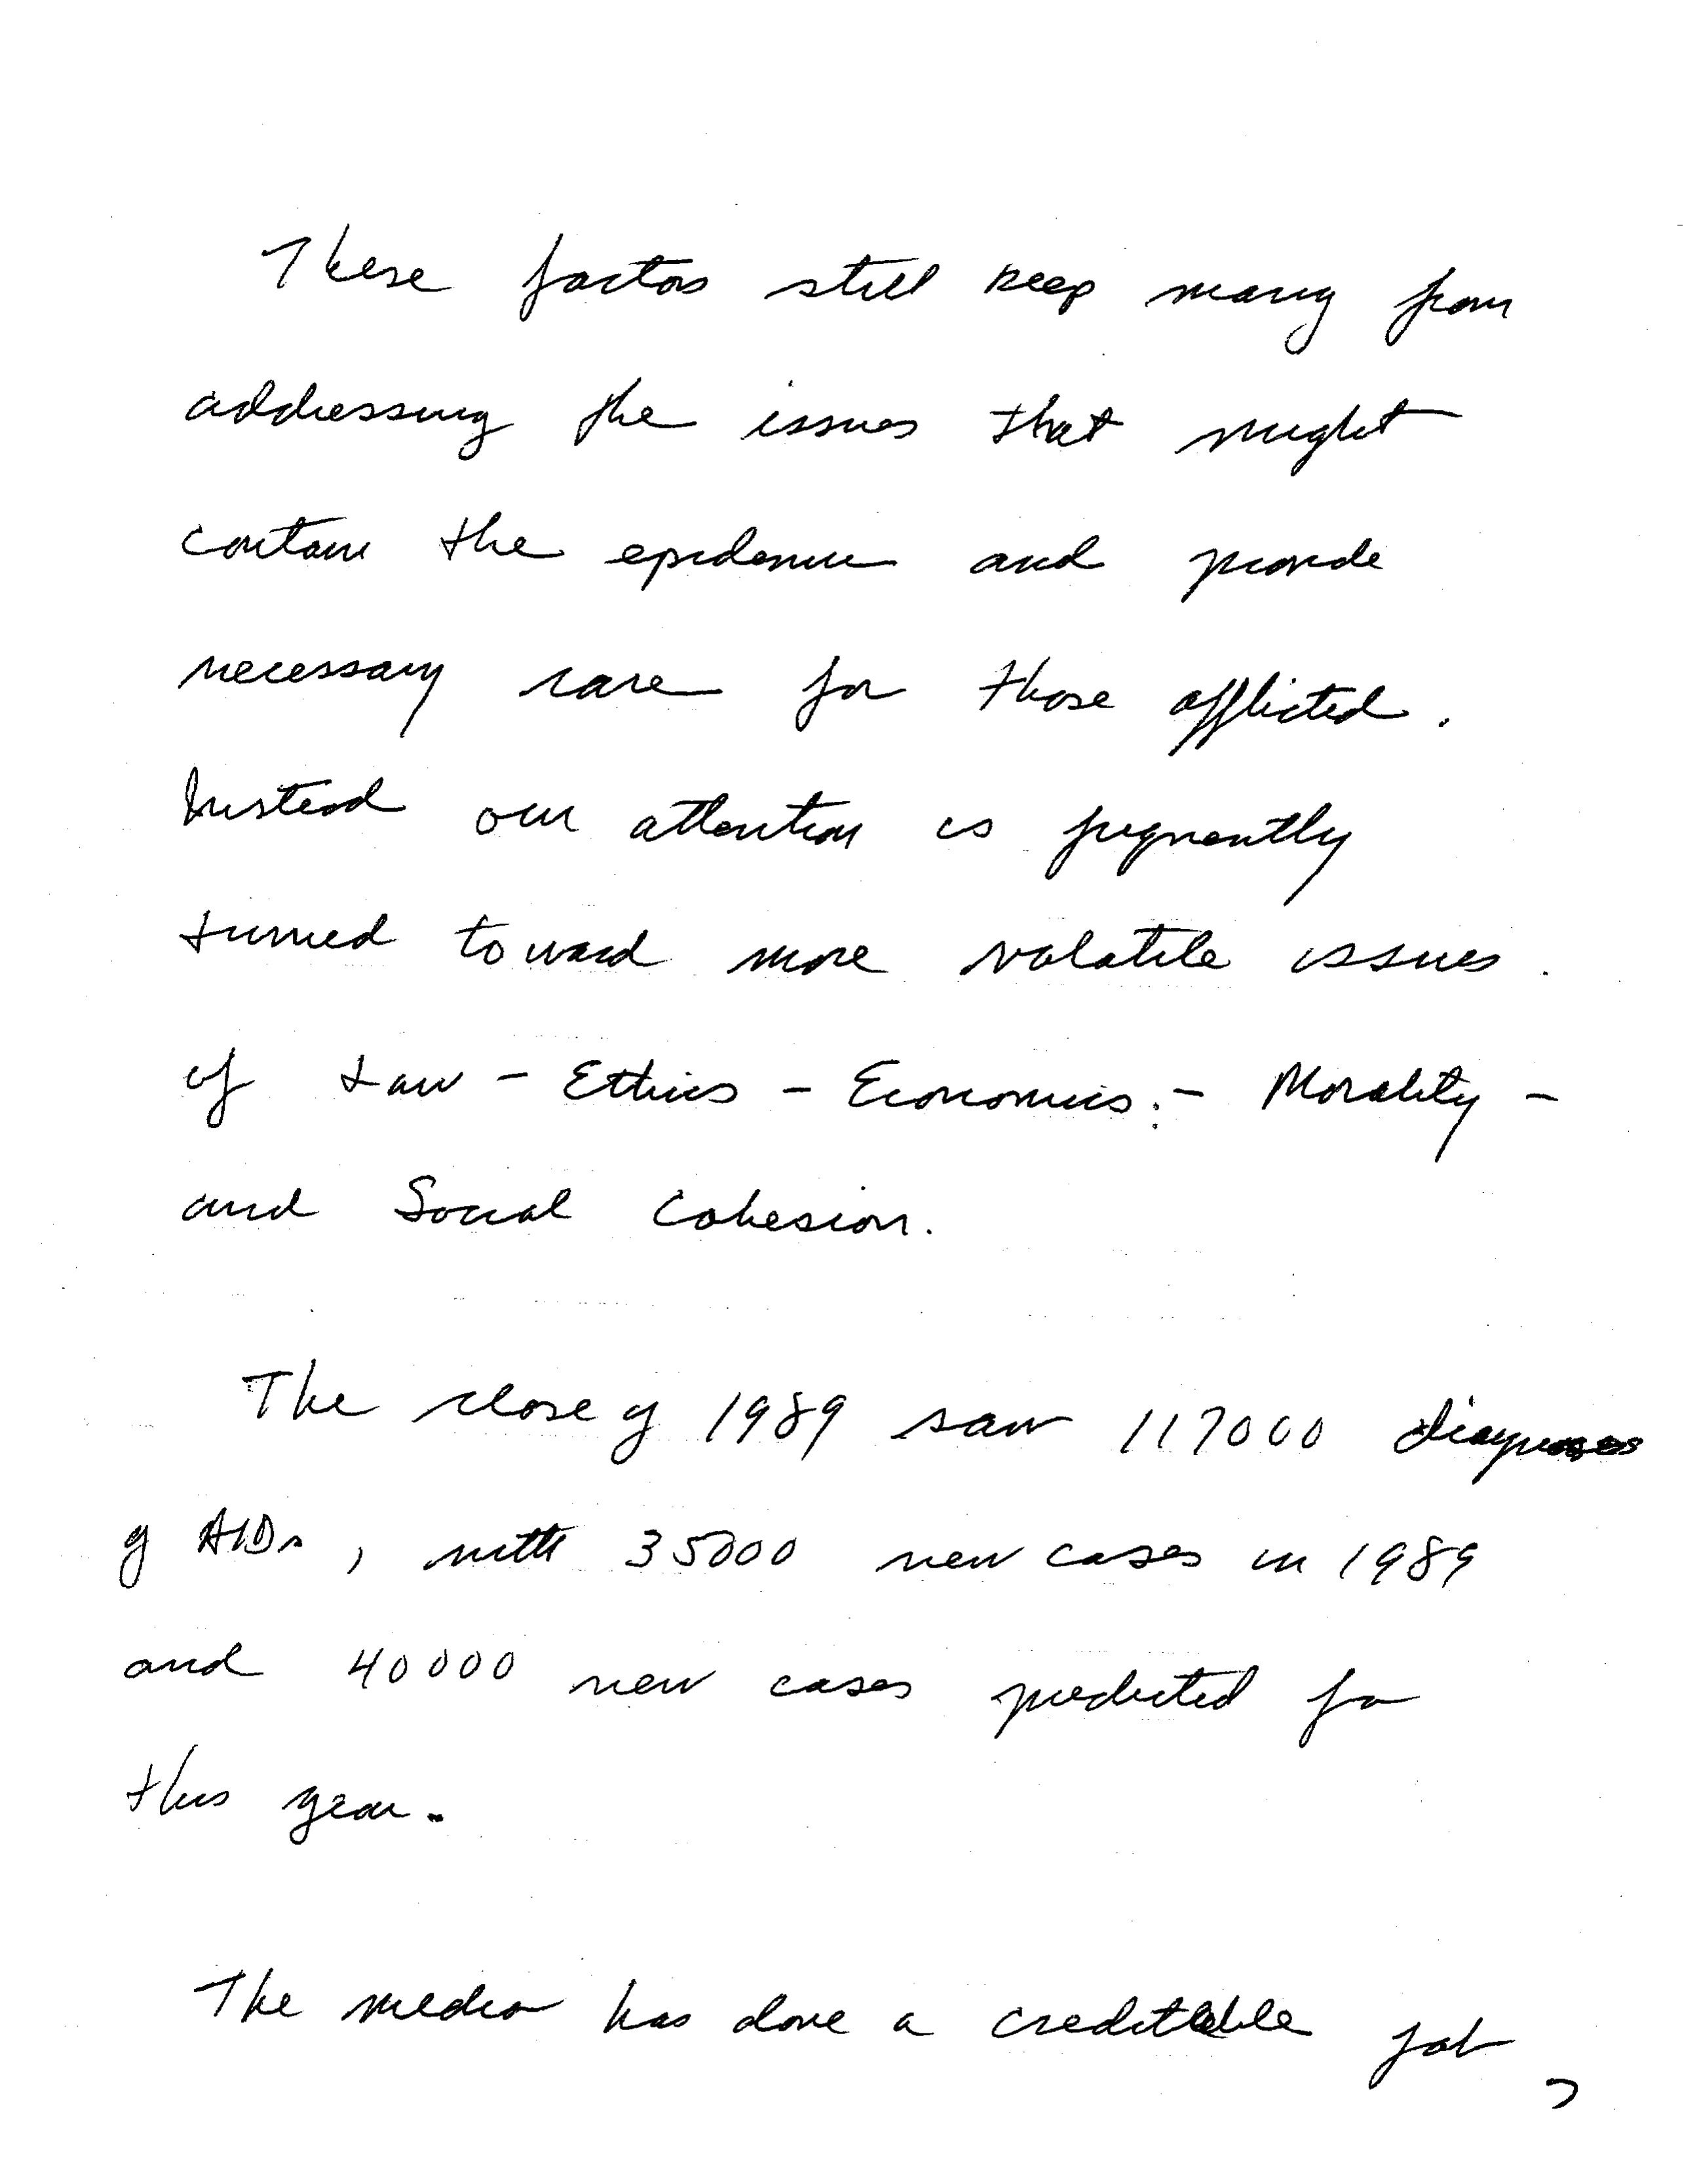 These factors still keep many from
addressing the issues that might
contain the epidemic and provide
necessary care for those afflicted.
Instead our attention is frequently
turned toward more volatile issues
of Law - Ethics - Economics - Morality -
and Social Cohesion.
The close of 1989 saw 117000 diagnoses
of AIDs, with 35000 new cases in 1989
and 40000 new cases predicted for
this year.
The media has done a creditable job